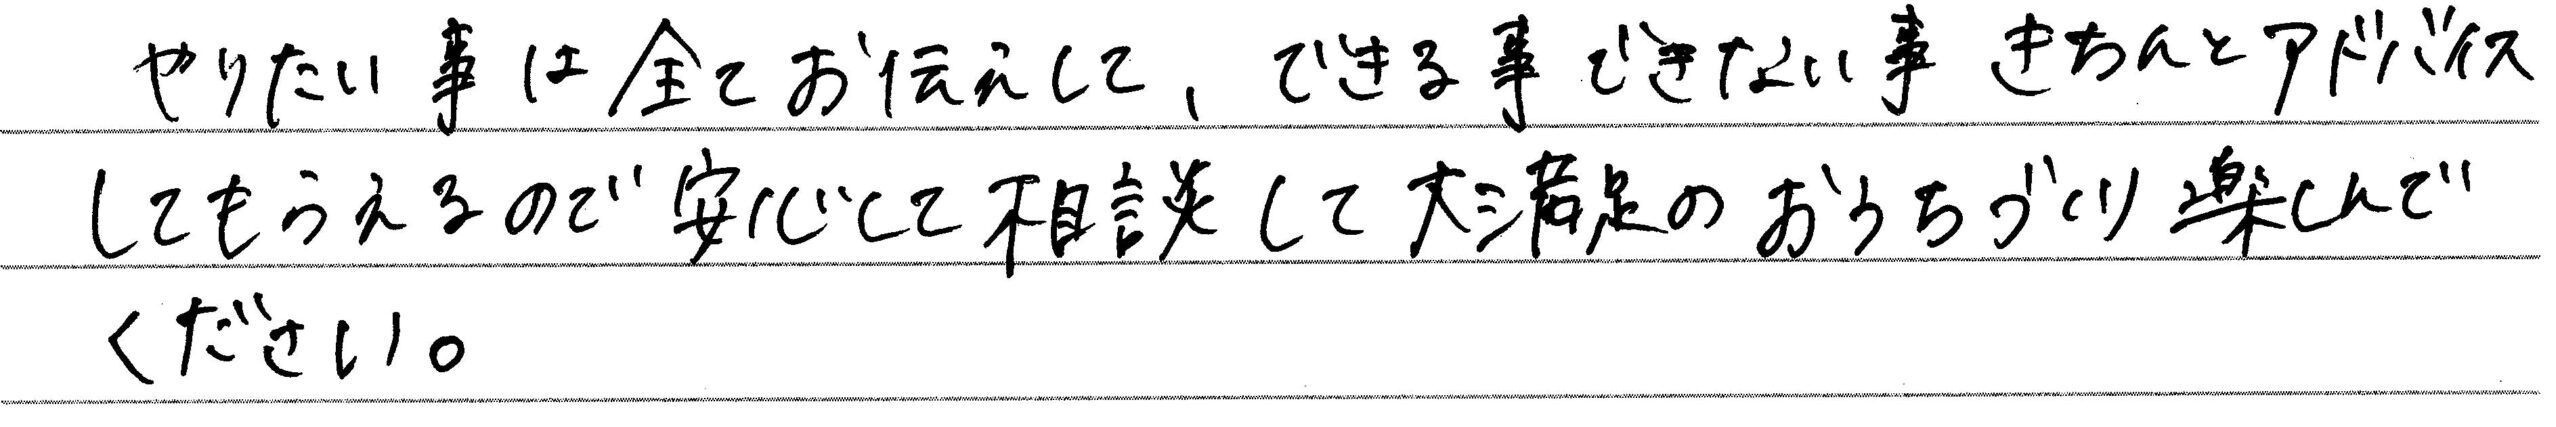 やりたい事は全てお伝えして、できる事できない事 きちんとアドバイス
してもらえるので安心して相談して大満足のおうちづくり楽しんで
ください。